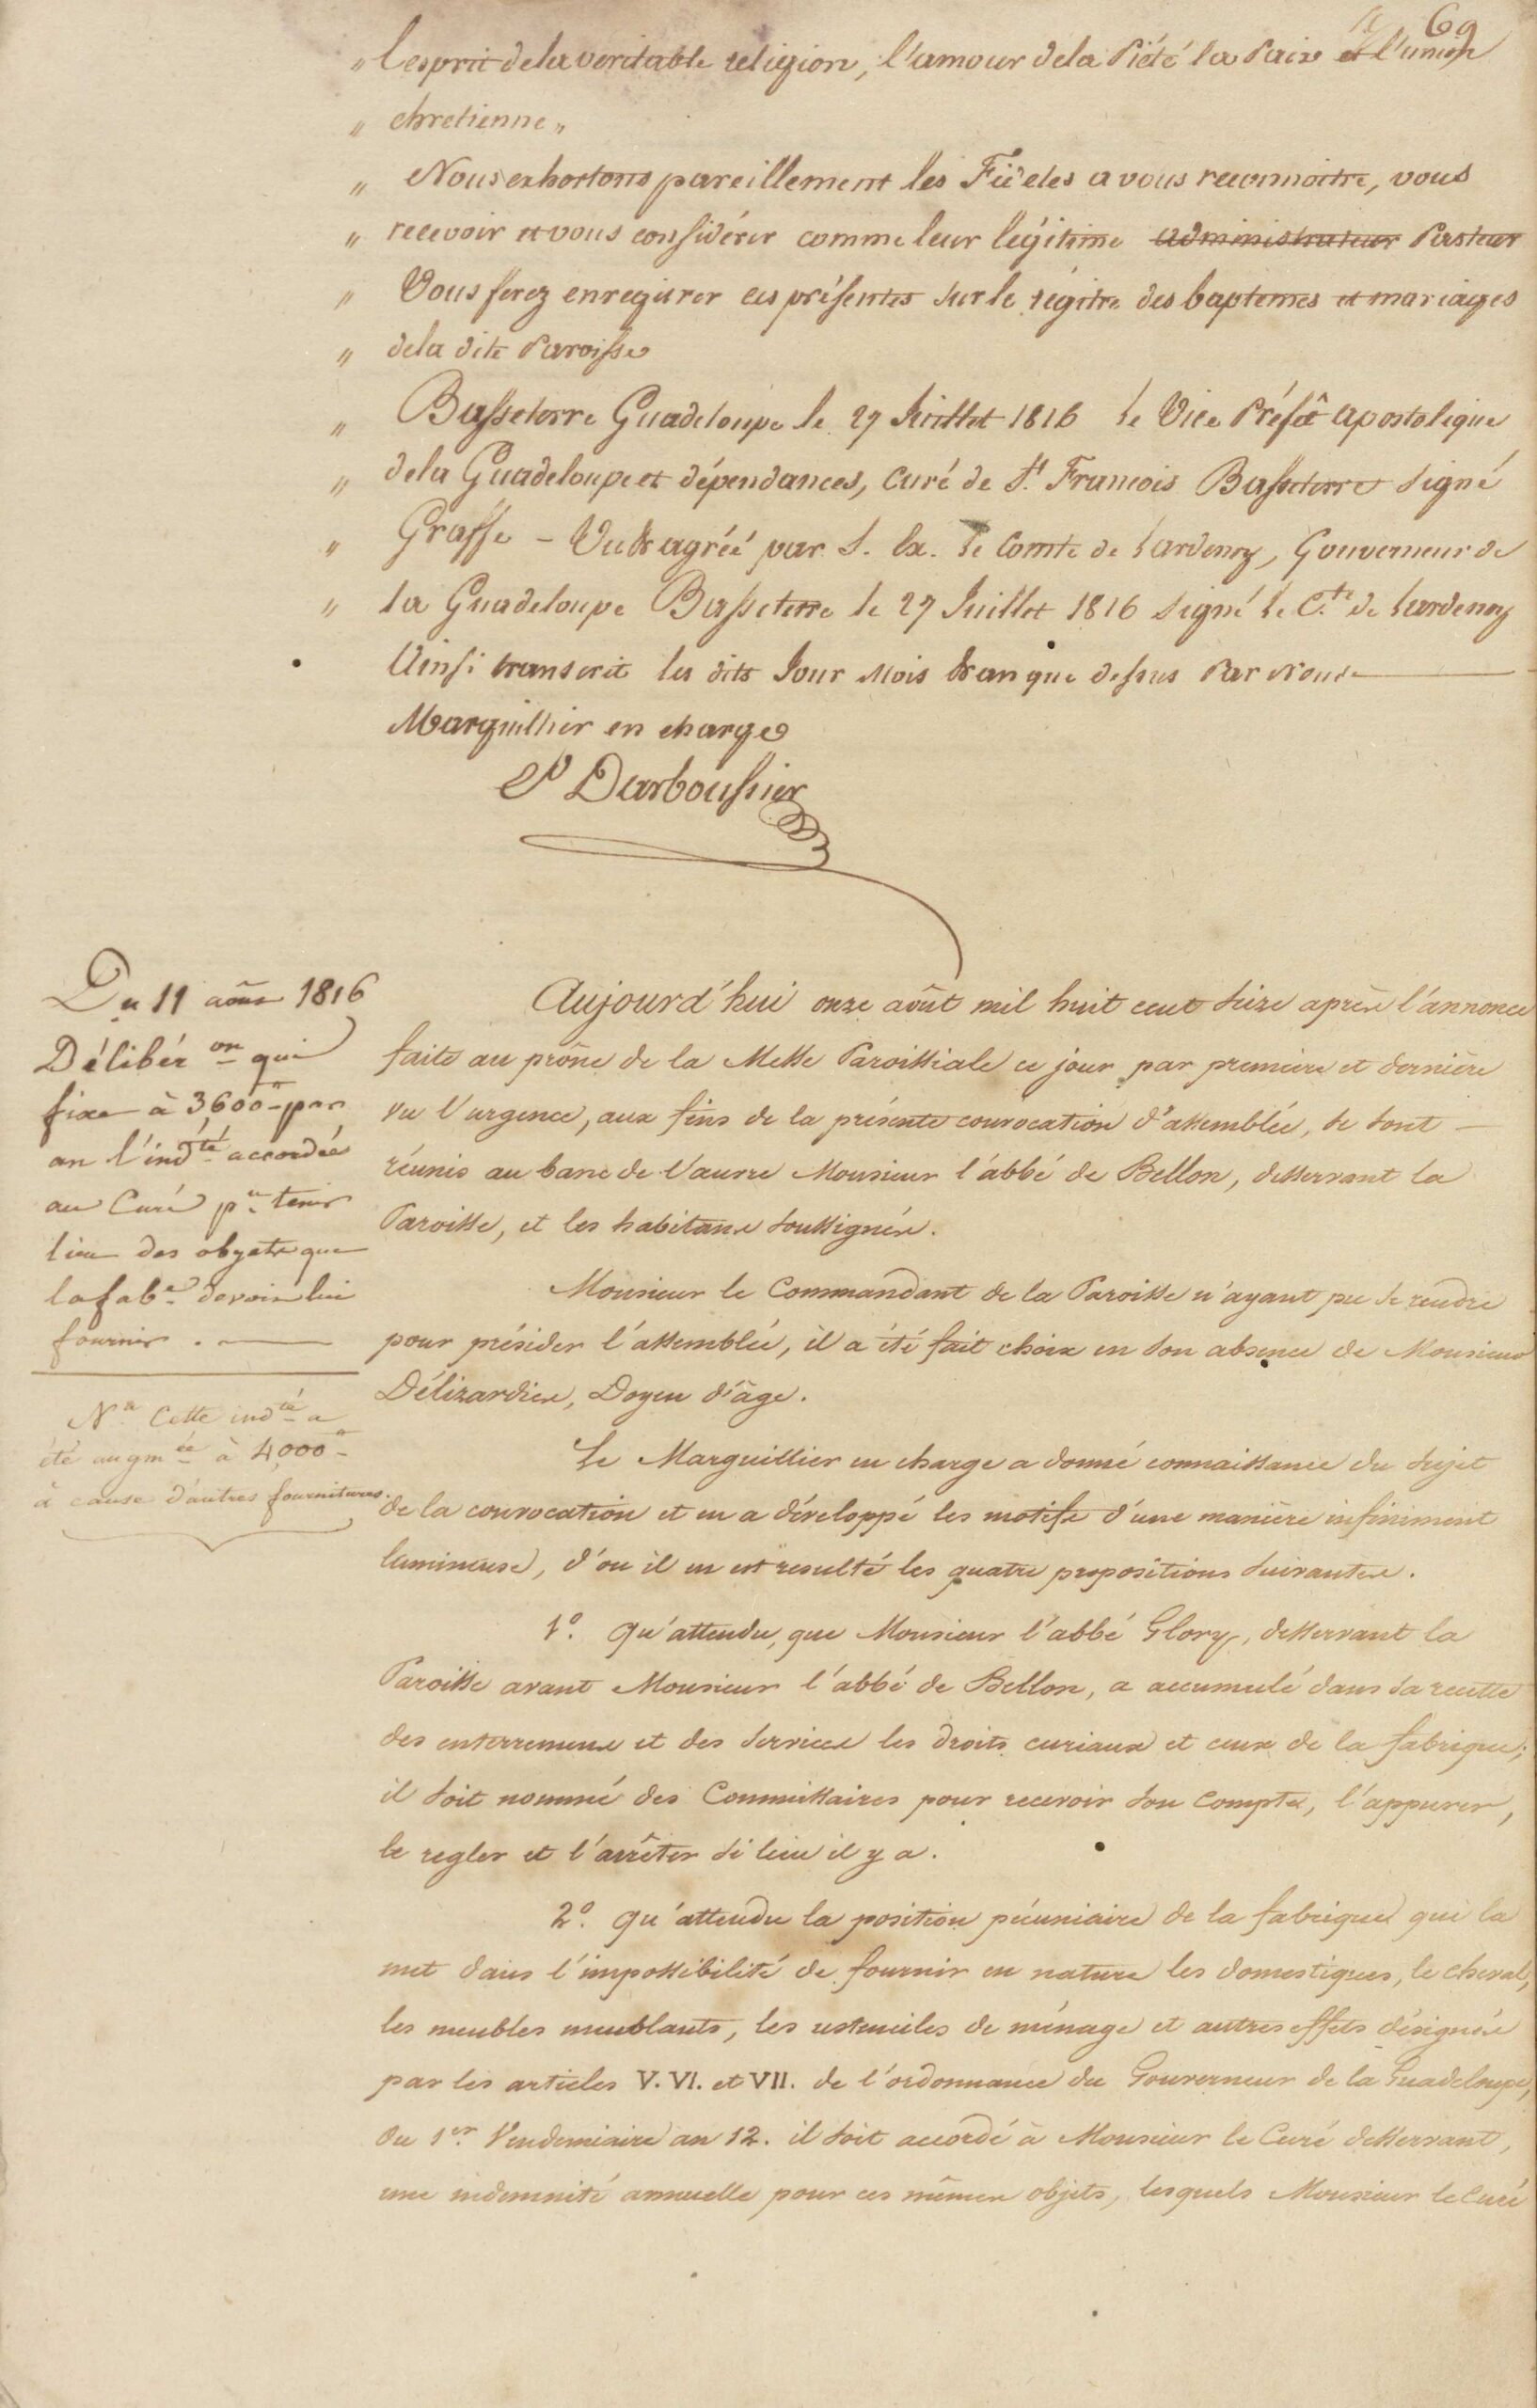 69
" l'esprit de la veritable religion, l'amour dela Piété la Paix et l'union
" chretienne "
" Nous exhortons pareillement les Fideles a vous reconnoitre, vous
" recevoir et vous considérer comme leur légitime administrateur Pasteur
" Vous ferez enregitrer ces présentes sur le régitre des baptemes et mariages
" dela dite Paroisse
" Basseterre Guadeloupe le 27 Juillet 1816 le Vice Préfèt apostolique
" dela Guadeloupe et dépendances, Curé de St. Francois Basseterre signé
" Graffe - Vu & agréé par S. Ex. le Comte de Lardenoy, Gouverneur de
" la Guadeloupe Basseterre le 27 Juillet 1816 signé le C.te de Lardenoy
Ainsi transcrit les dits Jour Mois & an que dessus Par Nous
Marguillier en charge
P Darboussier
Du 11 aôust 1816
Délibér on qui
fixe à 3600 tt par
an l'ind té accordée
au Curé p r tenir
lieu des objets que
la fab e devoit lui
fournir.
Aujourd'hui onze aôut mil huit cent seize après l'annonce
faite au prône de la Messe Paroissiale ce jour par première et dernière
vu l'urgence, aux fins de la présente convocation d'assemblée, se sont
réunis au banc de l'œuvre Monsieur l'abbé de Bellon, desservant la
Paroisse, et les habitans soussignés.
Monsieur le Commandant de la Paroisse n'ayant pu se rendre
pour présider l'assemblée, il a été fait choix en son absence de Monsieur
Délizardies, Doyen d'âge.
N a Cette ind té a
été augm ée à 4,000 tt
à cause d'autres fournitures.
Le Marguillier en charge a donné connaissance du sujet
de la convocation et en a développé les motifs d'une manière infiniment
lumineuse, d'ou il en est resulté les quatre propositions suivantes.
1o. Qu'attendu, que Monsieur l'abbé Glory, desservant la
Paroisse avant Monsieur l'abbé de Bellon, a accumulé dans sa recette
des enterremens et des services les droits curiaux et ceux de la fabrique;
il soit nommé des Commissaires pour recevoir son compte, l'appurer,
le regler et l'arrêter si lieu il y a.
2o. Qu'attendu la position pécuniaire de la fabrique qui la
met dans l'impossibilité de fournir en nature les domestiques, le cheval,
les meubles meublants, les ustenciles de ménage et autres effets désignés
par les articles V. VI. et VII. de l'ordonnance du Gouverneur de la Guadeloupe,
du 1er. Vendemiaire an 12. il soit accordé à Monsieur le Curé desservant,
une indemnité annuelle pour ces mêmes objets, lesquels Monsieur le Curé